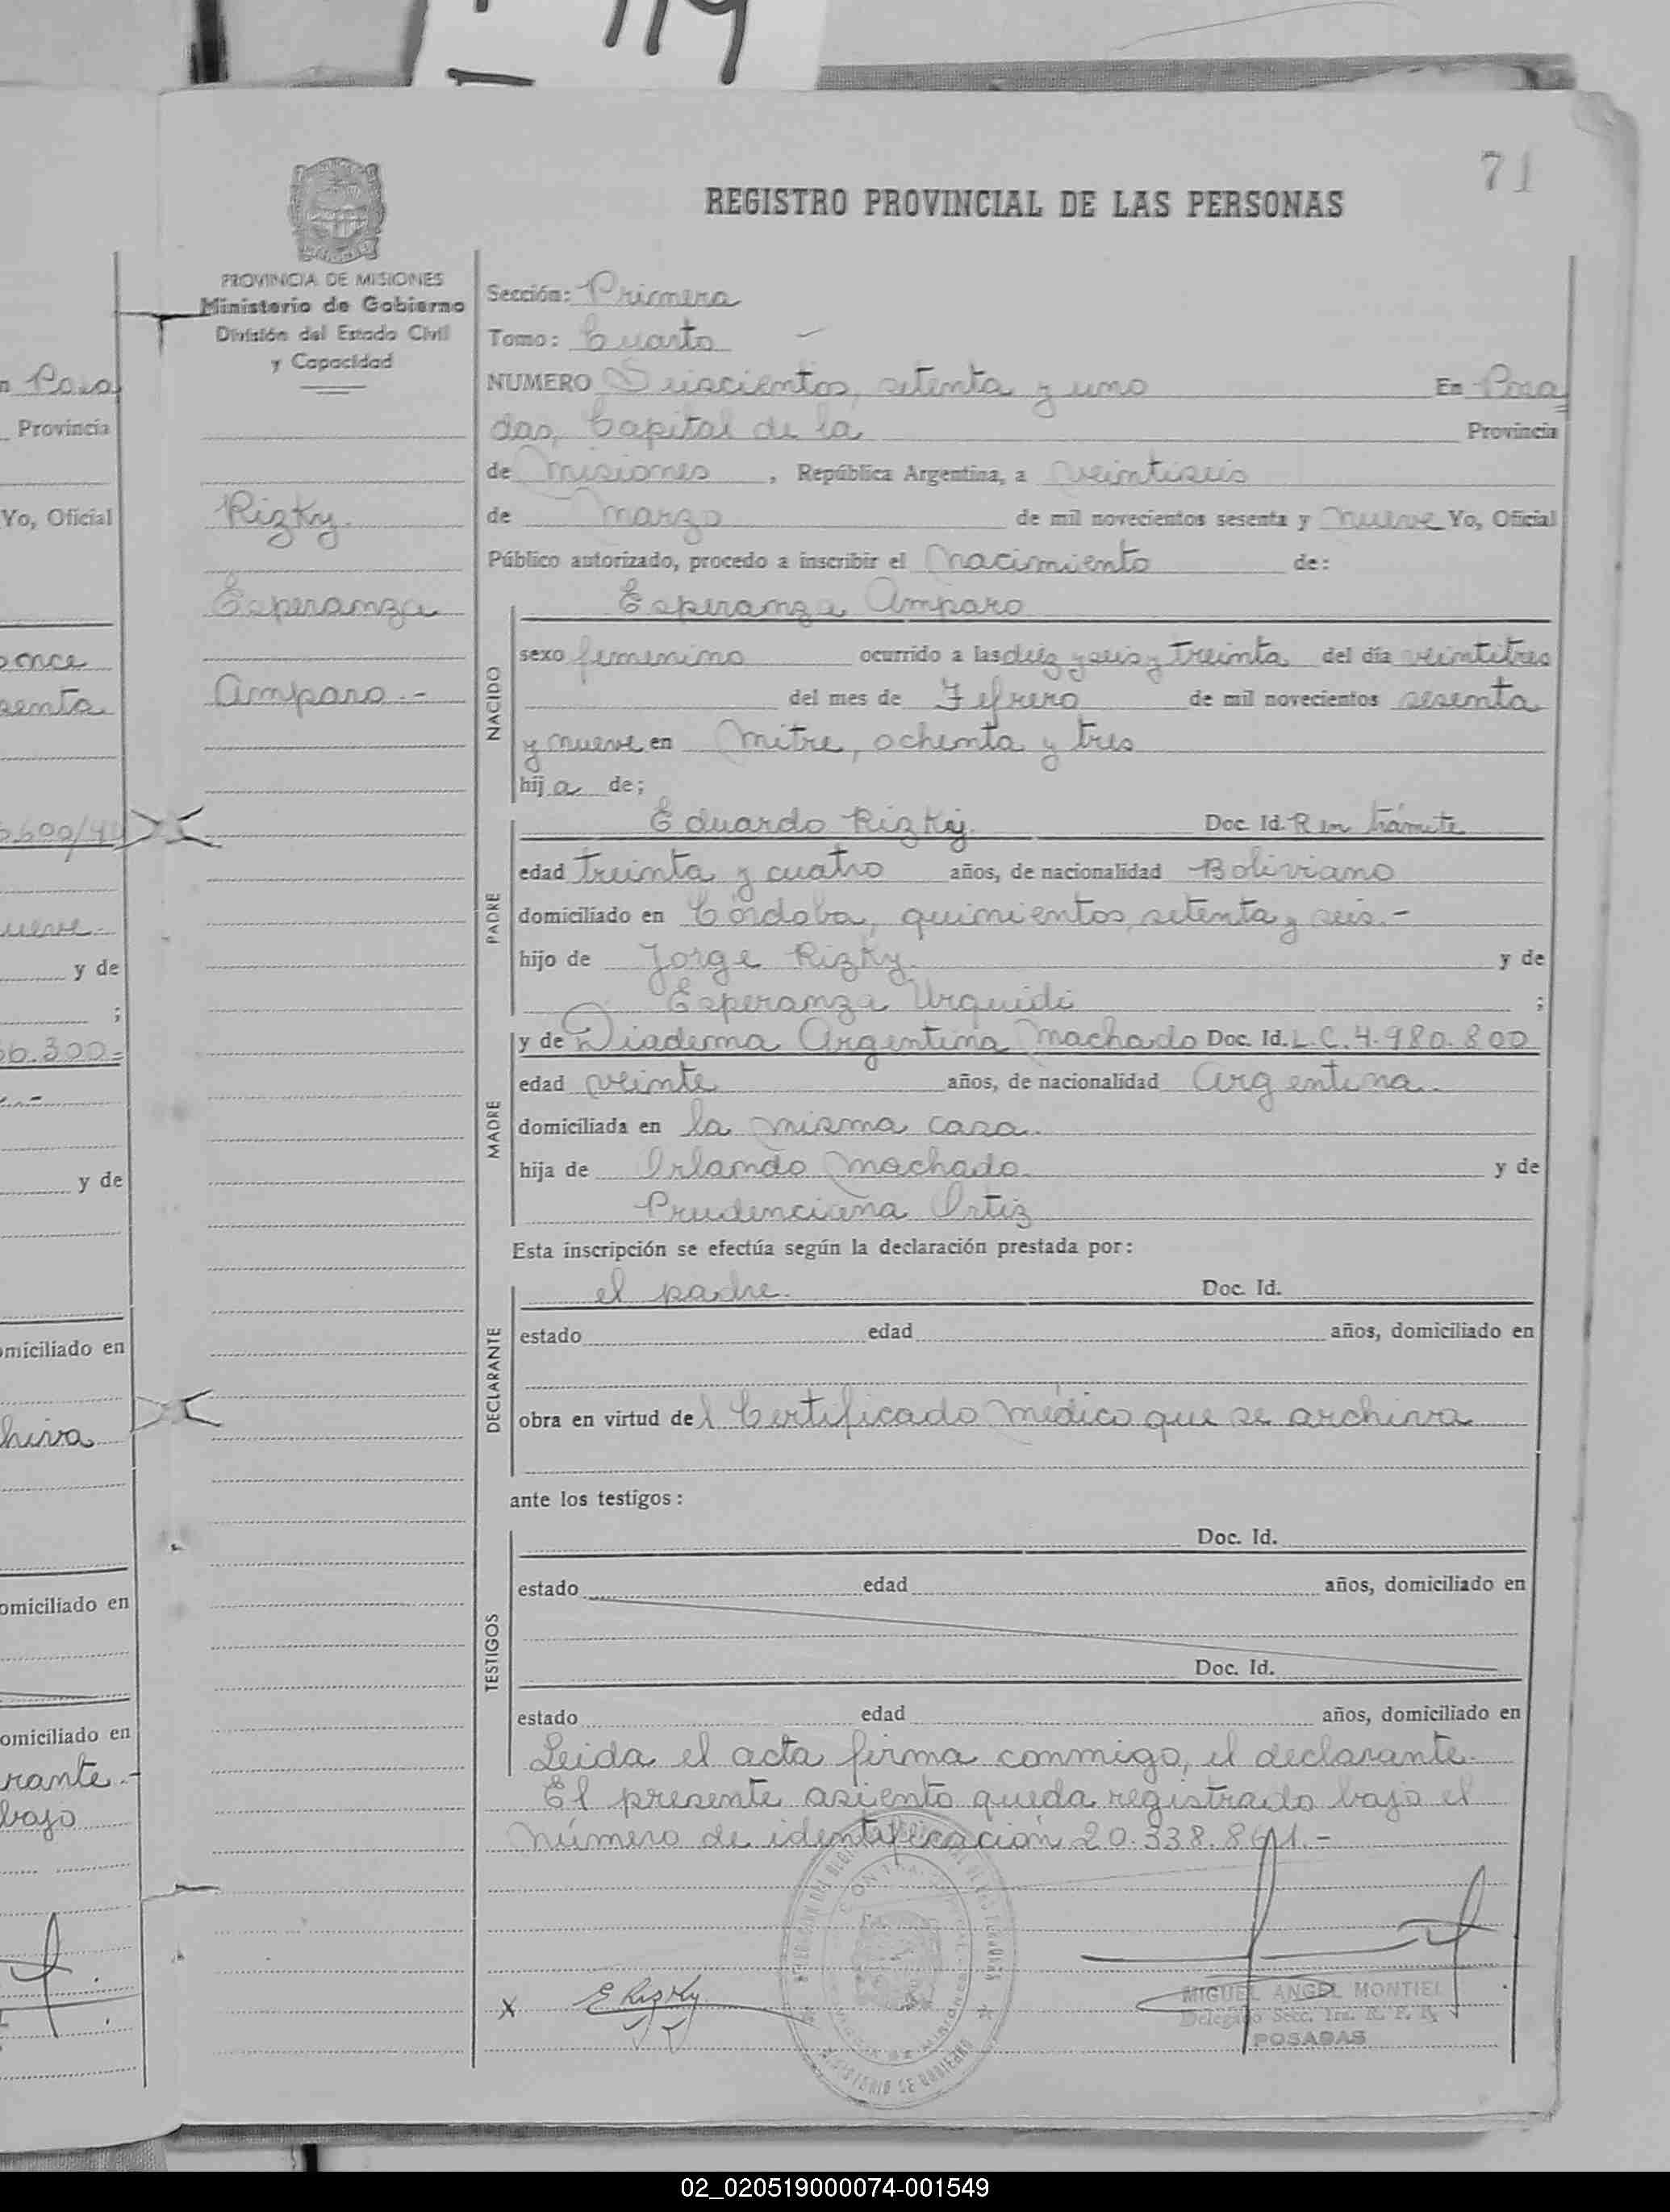 71
REGISTRO PROVINCIAL DE LAS PERSONAS
PROVINCIA DE MISIONES
Ministerio de Gobierno
División del Estado Civil
y Capacidad
Rizky.
Esperanza
Amparo.-
Sección: Primera
Tomo: Cuarto
NUMERO Seiscientos, setenta y uno En Posa
das, Capital de la Provincia
de Misiones, República Argentina, a veintiseis
de marzo de mil novecientos sesenta y nueve Yo, Oficial
Público autorizado, procedo a inscribir el nacimiento de:
NACIDO
Esperanza Amparo
sexo femenino ocurrido a las diez y seis y treinta del día veintitres
del mes de Febrero de mil novecientos sesenta
y nueve en Mitre, ochenta y tres
hija de;
PADRE
Eduardo Rizky. Doc. Id. R en trámite
edad treinta y cuatro años, de nacionalidad Boliviano
domiciliado en Córdoba, quinientos, setenta y seis.-
hijo de Jorge Rizky. y de
Esperanza Urquidi ;
MADRE
y de Diadema Argentina Machado Doc. Id. L.C. 4.980.800
edad veinte años, de nacionalidad Argentina.
domiciliada en la misma casa.
hija de Orlando Machado. y de
Prudenciana Ortiz
Esta inscripción se efectúa según la declaración prestada por:
DECLARANTE
el padre. Doc. Id.
estado edad años, domiciliado en
obra en virtud del Certificado médico que se archiva
ante los testigos:
TESTIGOS
Doc. Id.
estado edad años, domiciliado en
Doc. Id.
estado edad años, domiciliado en
Leida el acta firma conmigo, el declarante.
El presente asiento queda registrado bajo el
número de identificación 20.338.861.-
X E Rizky
MIGUEL ANGEL MONTIEL
Delegado Secc. 1ra. R. P. P.
POSADAS
MINISTERIO DE GOBIERNO
n Posa
Provincia
Yo, Oficial
once
senta
ueve.-
y de
;
6.300=
y de
omiciliado en
hiva
omiciliado en
omiciliado en
rante.-
bajo
02_020519000074-001549